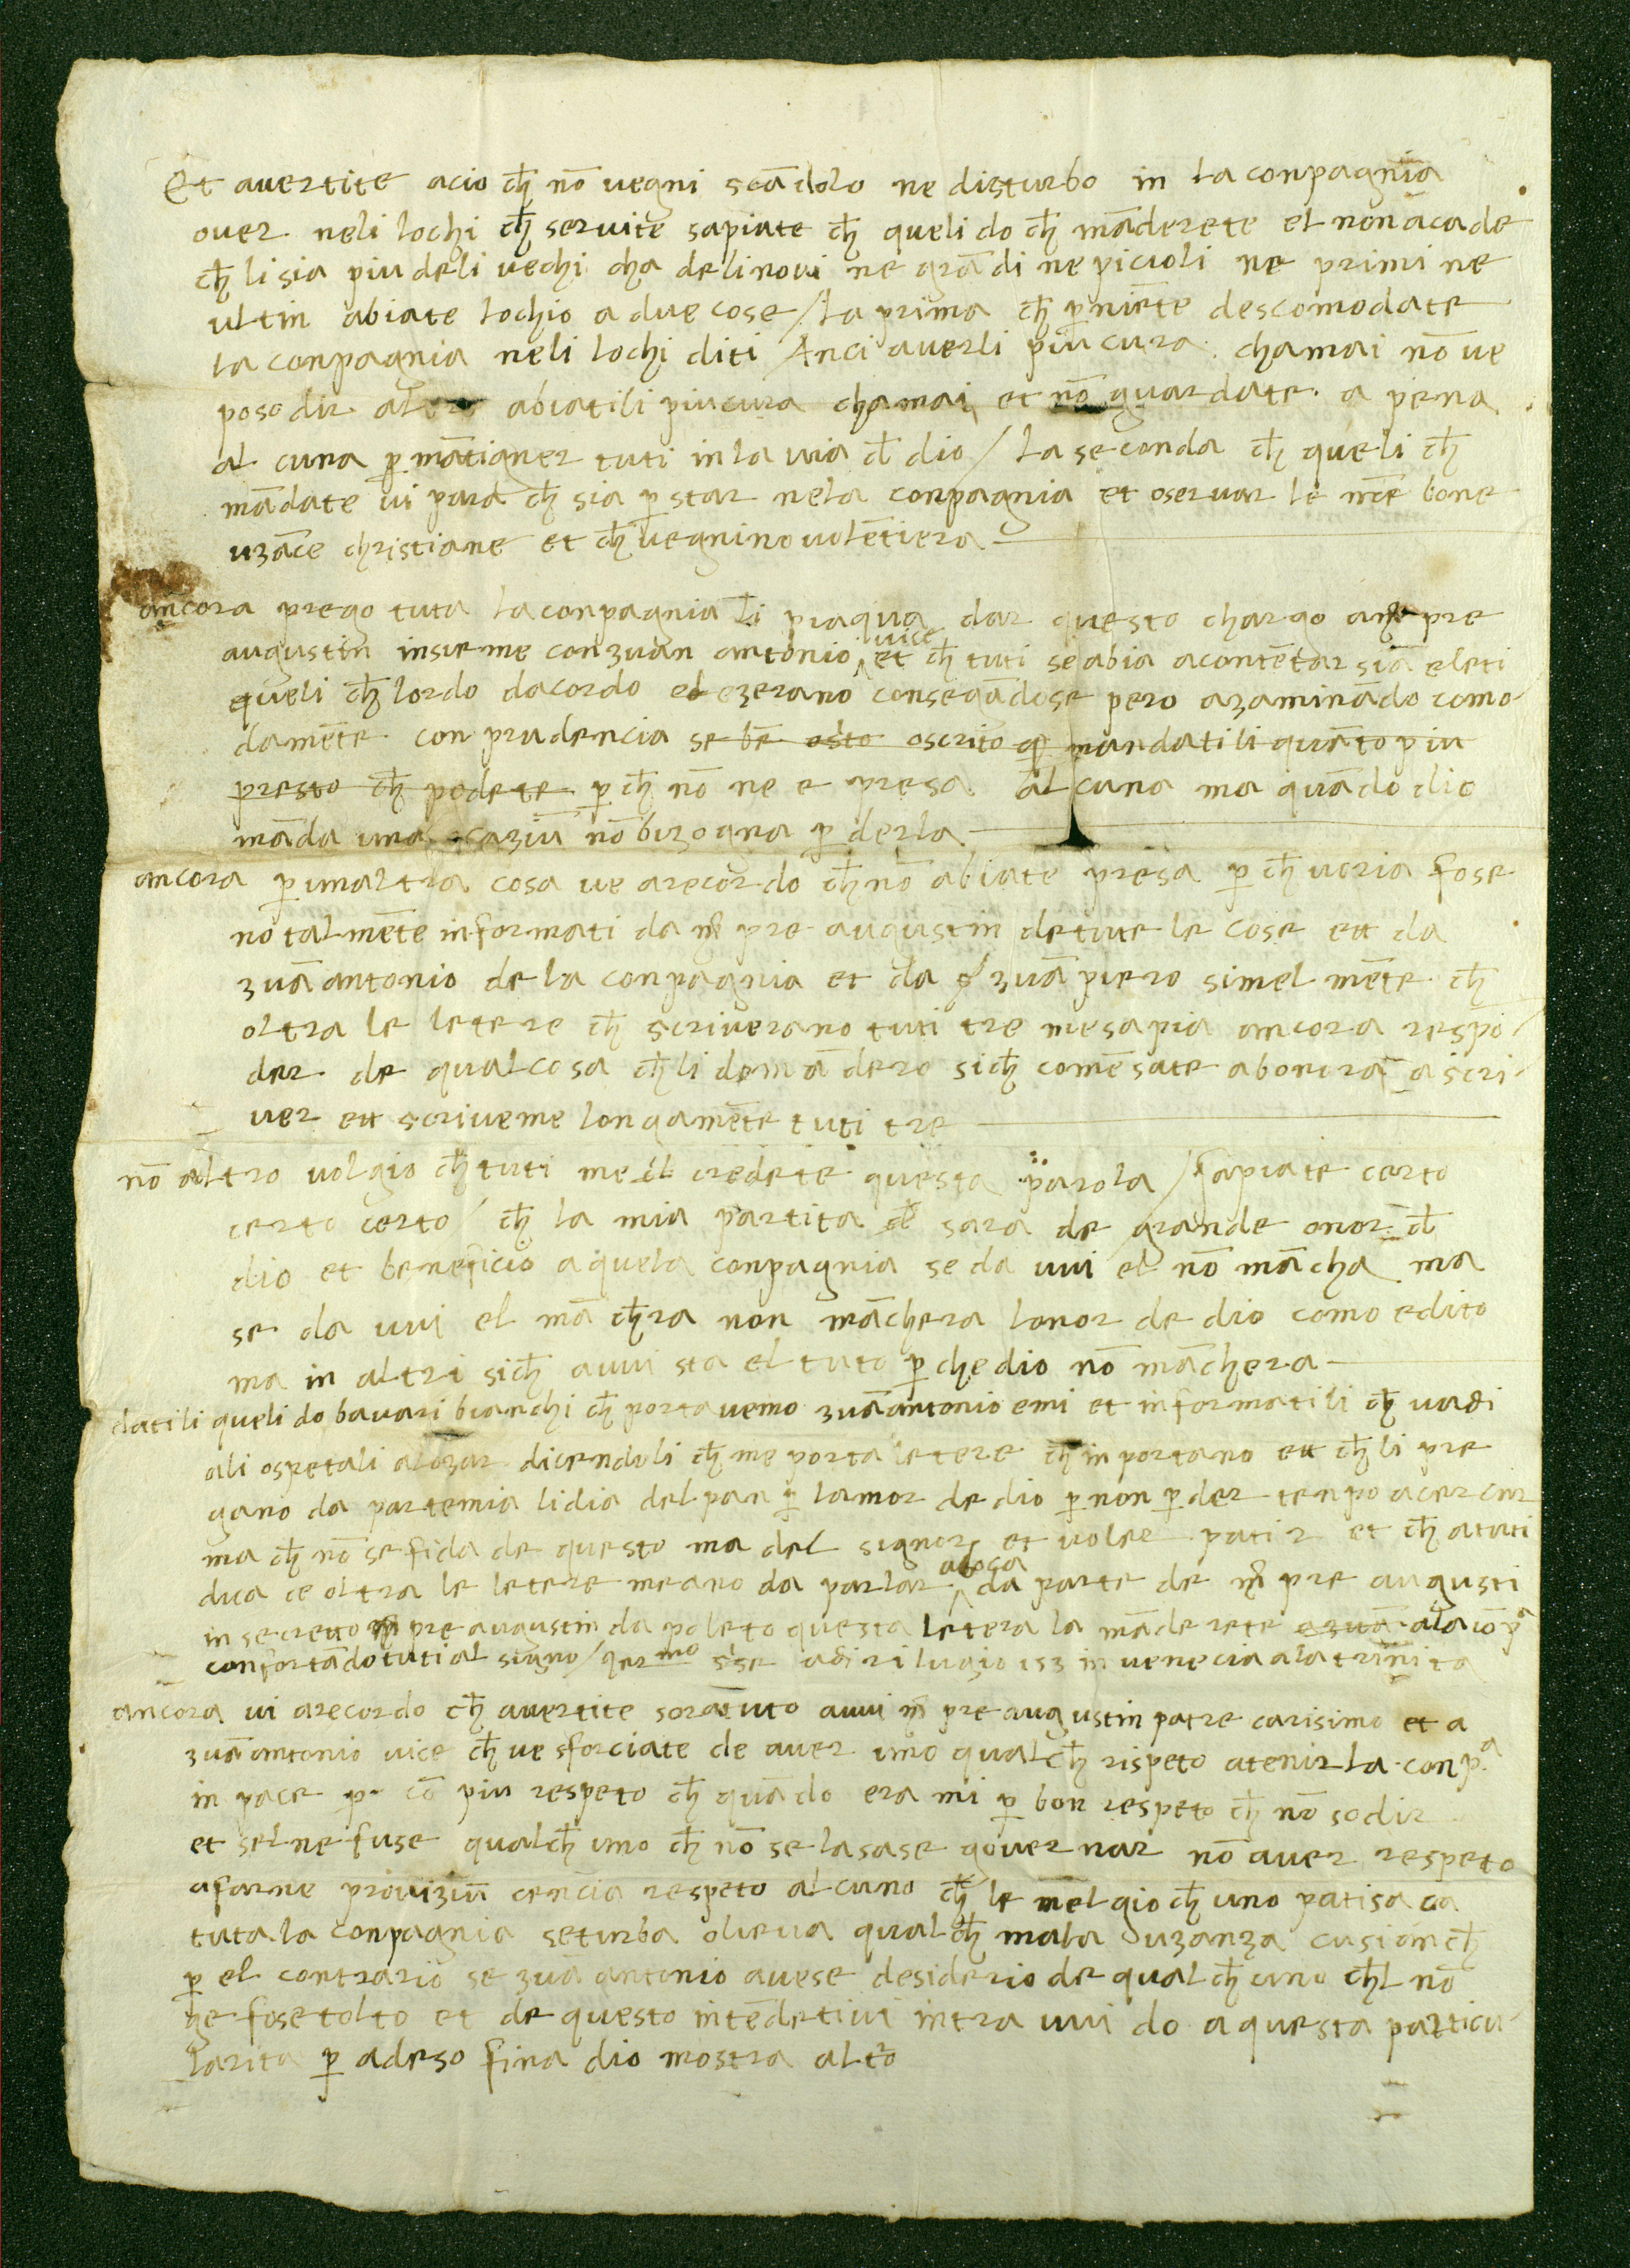 Et avertite acio ch̄ nō vegni scādolo ne disturbo in la conpagnia
over neli lochi ch̄ servite sapiate ch̄ queli do ch̄ māderete el non acade
ch̄ li sia piu deli vechi cha deli novi ne grādi ne picioli ne primi ne
ultin abiate lochio a due cose / la prima ch̄ p̄ niēte descomodate
la conpagnia neli lochi diti / Anci averli piu cura chamai nō ve
poso dir altro abiatili piu cura chamai et nō guardate a pena
al cuna p̄ mātigner tuti in la via d̄ dio / la seconda ch̄ queli ch̄
mādate vi para ch̄ sia p̄ star nela conpagnia et oservar le nr̄e bone
uzāce christiane et ch̄ vegnino volētiera
ancora prego tuta la conpagnia li piaqua dar questo chargo a pre
augustin insieme con zuan antonio vice et ch̄ tuti se abia acontētar siā eleti
queli ch̄ lordo dacordo elezerano consegādose pero azaminādo como
damēte con prudencia se bē oscrito mandatili quāto piu
presto ch̄ podete p̄ ch̄ nō ne e presa al cuna ma quādo dio
māda una ocaziū nō bizogna p̄ derla
ancora p̄ unaltra cosa ve arecordo ch̄ nō abiate presa p̄ ch̄ voria fose
no talmēte informati da mr̄ pre augustin de tute le cose ett da
zuā antonio de la conpagnia et da zuā piero simel mēte ch̄
oltra le letere ch̄ scriverano tuti tre me sapia ancora respō
der de qualcosa ch̄ li domādero sich̄ comēsate abonora a scri
ver ett scriveme longamēte tuti tre
nō altro volgio ch̄ tuti me credete questa parola / sapiate certo
certo certo ch̄ la mia partita sara de grande onor d̄
dio et beneficio a quela conpagnia se da vui el nō mācha ma
se da vui el mā ch̄ra non māchera lonor de dio como edito
ma in altri sich̄ a vui sta el tuto p̄ che dio nō māchera
datili queli do bavari bianchi ch̄ portavemo zuā antonio e mi et informatili ch̄ vadi
ali ospetali alozar dicendoli ch̄ me porta letere ch̄ inportano ett ch̄ li pre
gano da parte mia li dia del pan p̄ lamor de dio p̄ non p̄der tenpo a cercar
ma ch̄ nō se fida de questo ma del signor et voler patir et ch̄ a tuti
dica ce oltra le letere meano da parlar a boca da parte de mr̄ pre augusti
in secretto mr̄ pre augustin da poleto questa letera la māderete ala cō pa
confortādo tuti al signo / germo adi ri lugio 153 in venecia ala trinita
ancora vi arecordo ch̄ avertite soratuto a vui mr̄ pre augustin patre carisimo et a
zuā antonio vice ch̄ ve sforciate de aver uno qualch̄ rispeto a tenir la conp.a
in pace p̄ cō piu respeto ch̄ quādo era mi p̄ bon respeto ch̄ nō so dir
et sel ne fuse qualch̄ uno ch̄ nō se lasase governar nō aver respeto
a farne provizīu cencia respeto al cuno ch̄ le melgio ch̄ uno patisa ca
tuta la conpagnia se turba o lieva qualch̄ mala uzanza cusi anch̄
p̄ el contrario se zuā antonio avese desiderio de qualch̄ uno ch̄l nō
ge fose tolto et de questo intēdetivi intra vui do a questa particu
larita p̄ adeso fina dio mostra altro